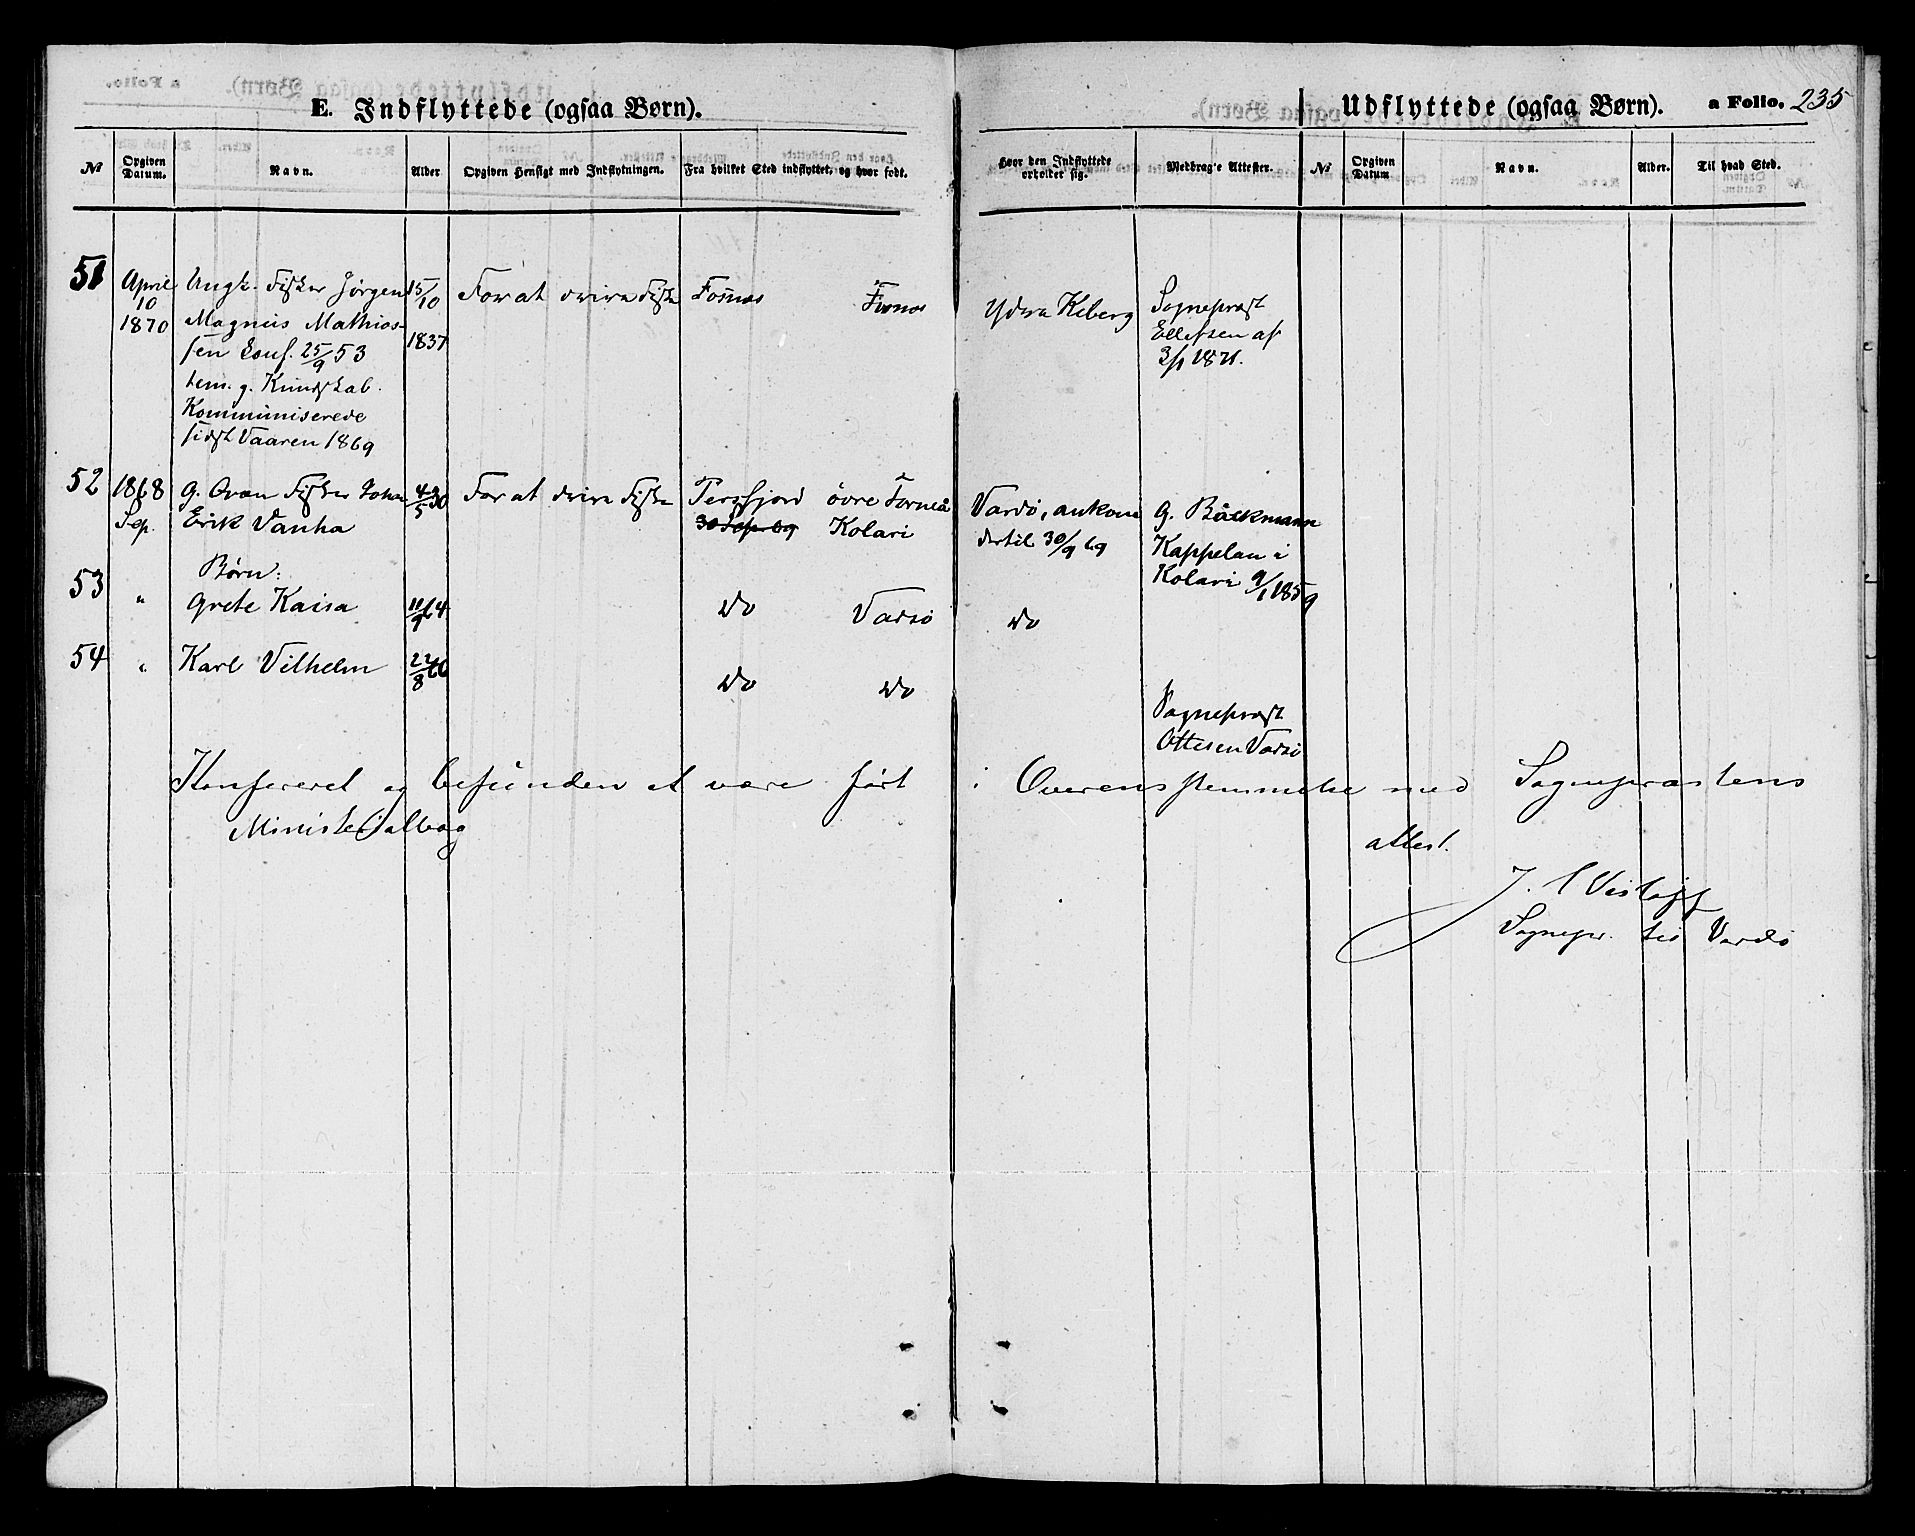 E. Indflyttede (ogsaa Børn).
Udflyttede (ogsaa Børn). a Folio. 235
No Opgiven Datum. Navn. Alder Opgiven Hensigt med Indflytningen. Fra hvilket Sted indflyttet, og hvor født.
Hvor den Indflyttede opholder sig. Medbragte Attester. No Opgiven Datum Navn. Alder. Til hvad Sted.
51 April Ungk. Fisker Jørgen 15/10 For at drive Fiske Fosnæs Fosnæs Ydre Kiberg Sognepræst
10 Magnus Mathias- 1837 Ellefsen af
1870 sen Conf. 25/9 53 3/1 1871.
tem. g. Kundskab.
Kommuniserede
sidst Vaaren 1869
52 1868 g. Qvæn Fisker Johan 4/5 30 For at drive Fiske Persfjord övre Torneå Vardö, ankom G. Bäckmann
Sep. Erik Vanha 30 Sep. 69 Kolari dertil 30/9 69 Kappelan i
Kolari 9/1 1859
Børn:
53 " Grete Kaisa 11/9 64 do Vadsö do
54 " Karl Vilhelm 22/8 66 do do
Sognepræst
Ottesen Vadsö
Konfereret og befunden at være ført i Overensstemmelse med Sognepræstens
Ministerialbog
attest.
Sognepr. til Vardö